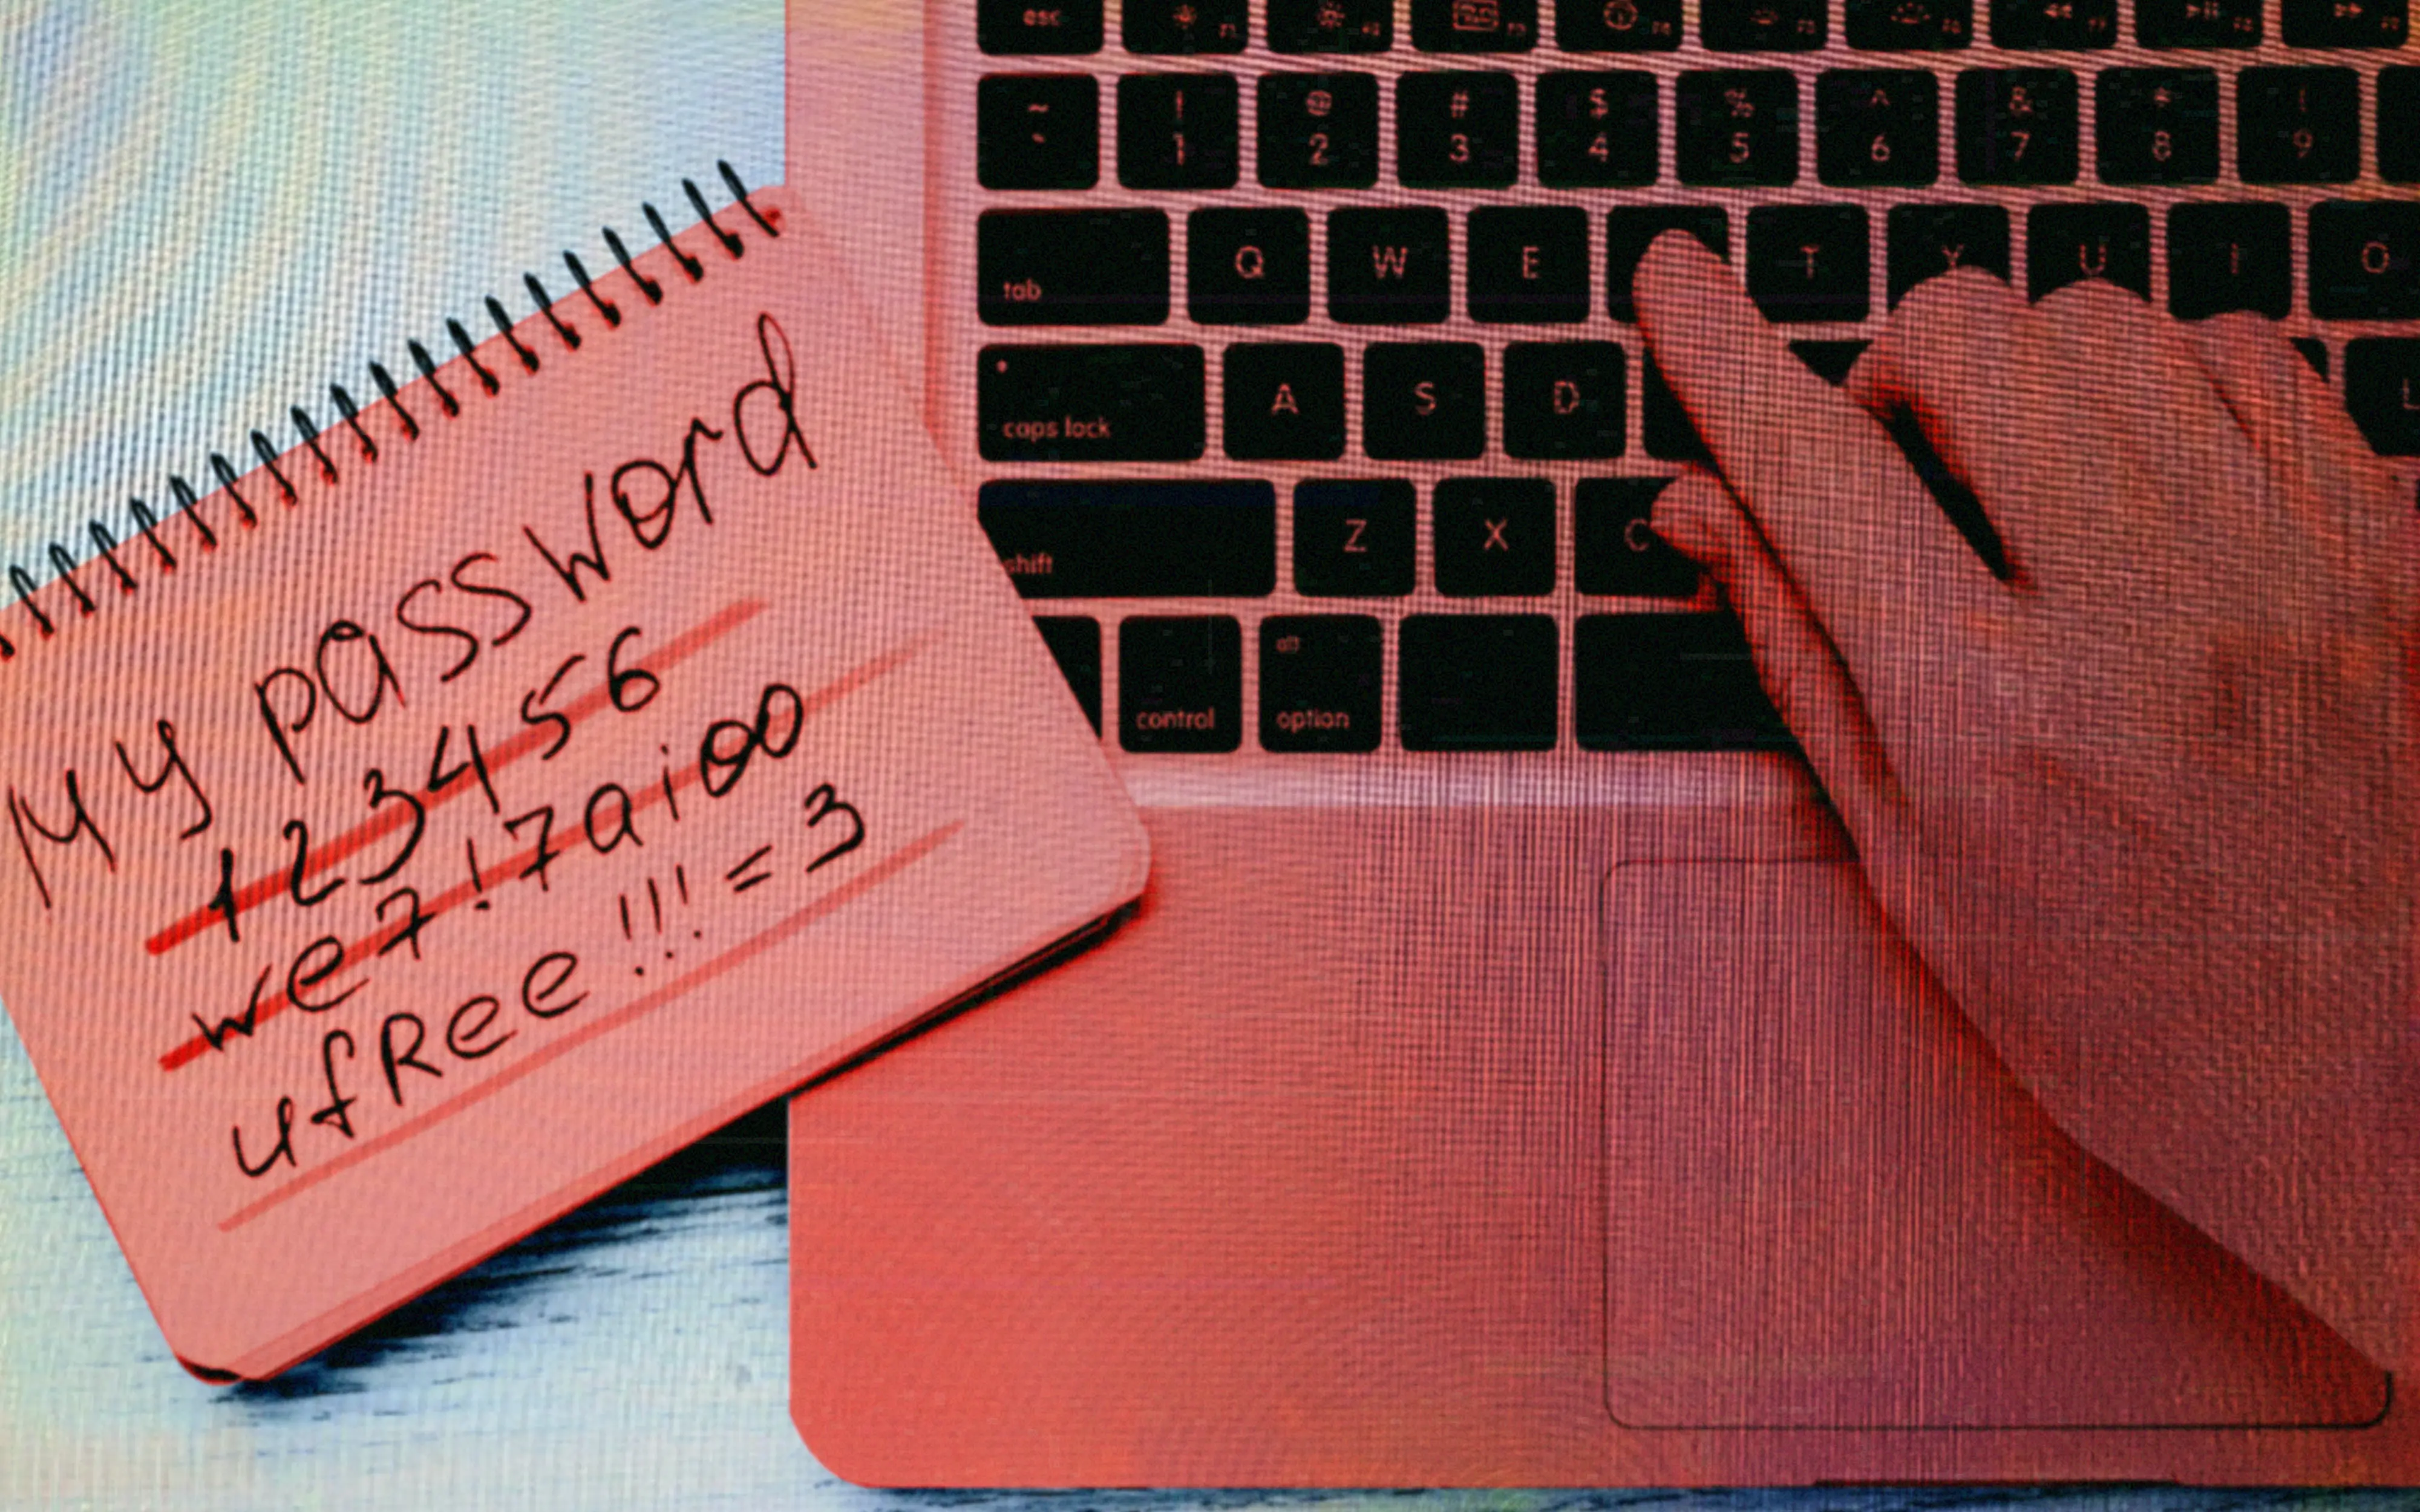 My password
123456
we7!7aioo
ufRee!!!=3
esc F1 F2 F3 F4 F5 F6 F7 F8
~ ` ! 1 @ 2 # 3 $ 4 % 5 ^ 6 & 7 * 8 ( 9
tab Q W E T Y U I O
caps lock A S D L
shift Z X C
control alt option